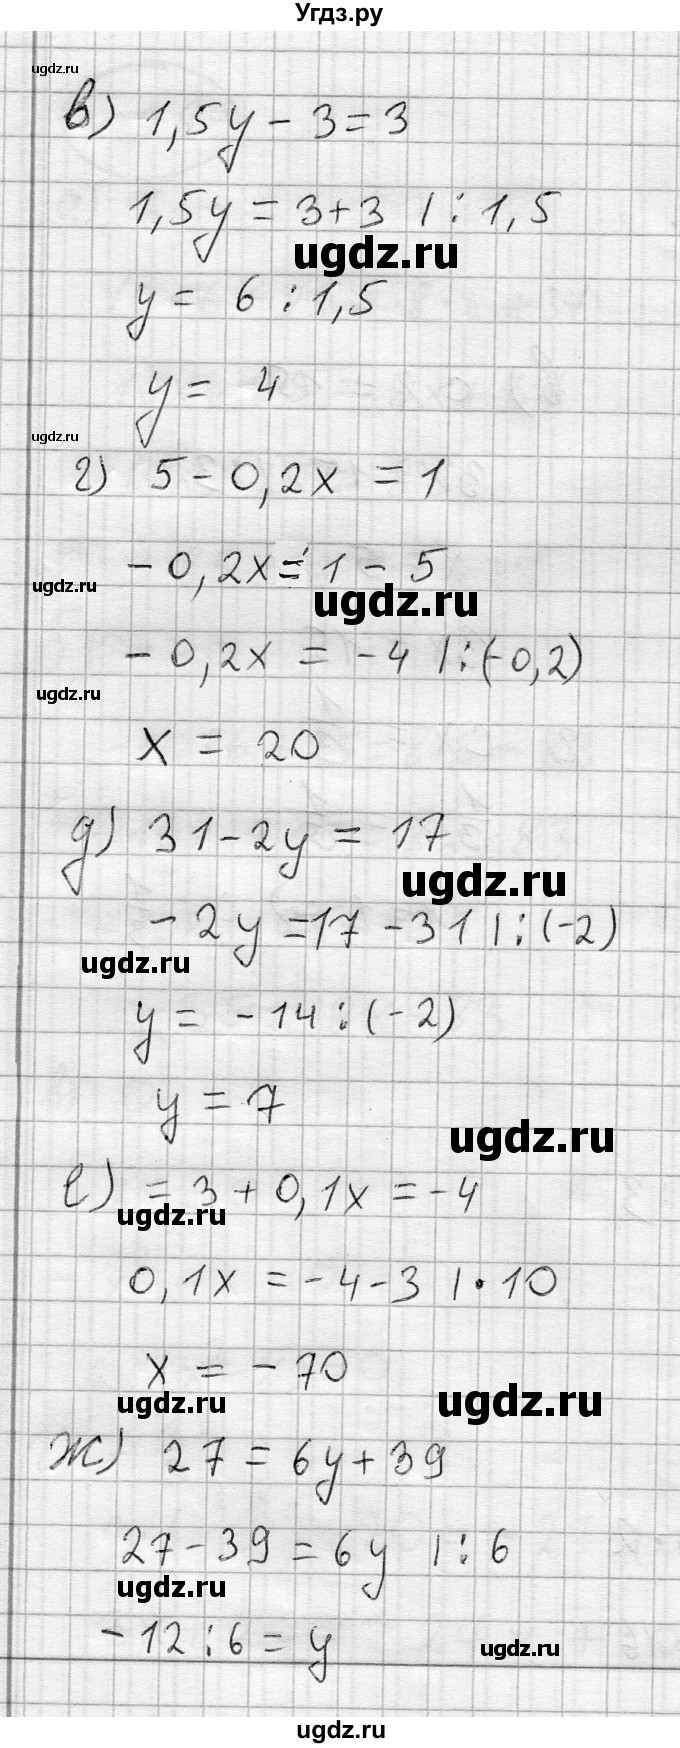 Угдз.ру
ugdz.ru
в) 1,5y - 3 = 3
1,5y = 3+3 | : 1,5
ugdz.ru
y = 6 : 1,5
y = 4
ugdz.ru
г) 5 - 0,2x = 1
-0,2x = 1 - 5
ugdz.ru
ugdz.ru
-0,2x = -4 | : (-0,2)
ugdz.ru
x = 20
д) 31 - 2y = 17
ugdz.ru
-2y = 17 - 31 | : (-2)
ugdz.ru
y = -14 : (-2)
y = 7
ugdz.ru
е) = 3 + 0,1x = -4
ugdz.ru
0,1x = -4 - 3 | · 10
x = -70
ugdz.ru
ugdz.ru
ж) 27 = 6y + 39
27 - 39 = 6y | : 6
ugdz.ru
-12 : 6 = y
ugdz.ru
ugdz.ru